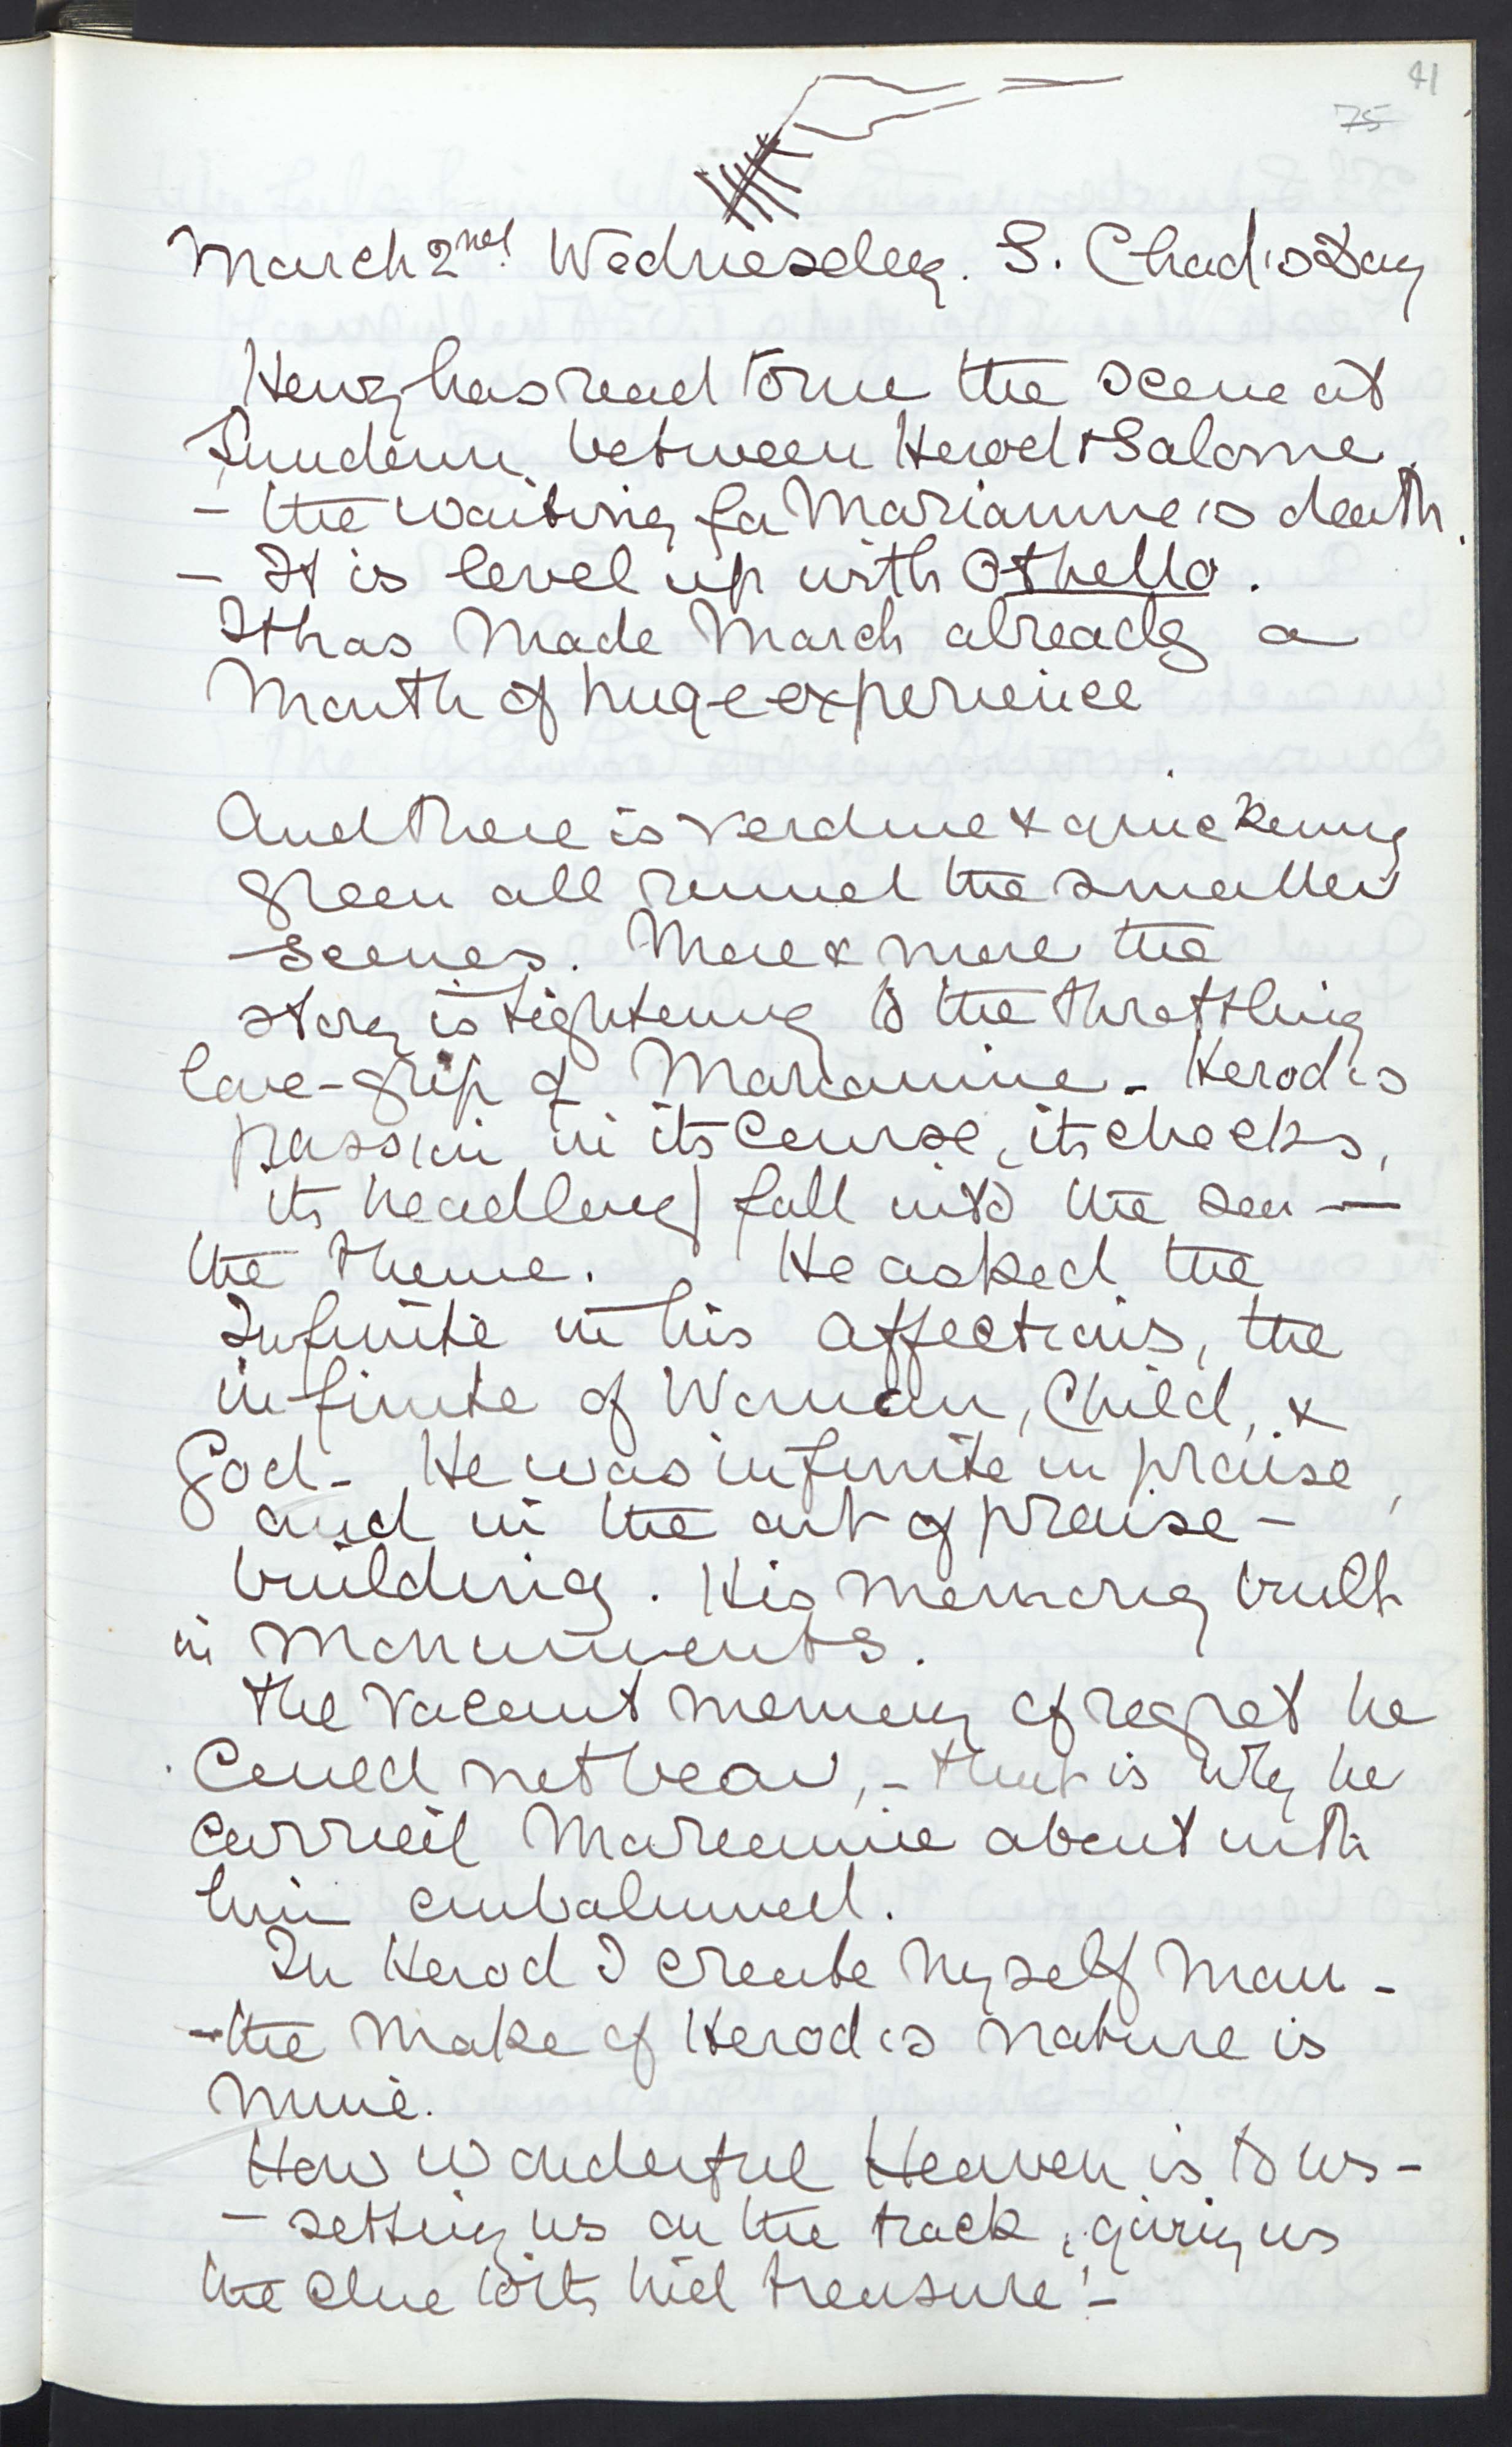 41
75
March 2nd. Wednesday. S. Chad's Day
Henry has read to me the scene at
Sundown between Herod & Salome
- the waiting for Mariamne's death.
- It is level up with Othello.
It has made March already a
Month of huge experience
And there is verdure & quickening
green all round the smaller
scenes. More & more the
story is tightening to the throttling
love-grip of Mariamne - Herod's
passion in its course, its checks,
its headlong fall into the sea —
the theme. He asked the
Infinite in his affections, the
infinite of Woman, Child, &
God - He was infinite in praise,
and in the art of praise -
building. His memory built
in Monuments.
The vacant memory of regret he
Could not bear, - that is why he
carried Mariamne about with
him embalmed.
In Herod I create myself man -
- the make of Herod's nature is
mine.
How wonderful Heaven is to us -
- setting us on the track, giving us
the clue to its hid treasure! -